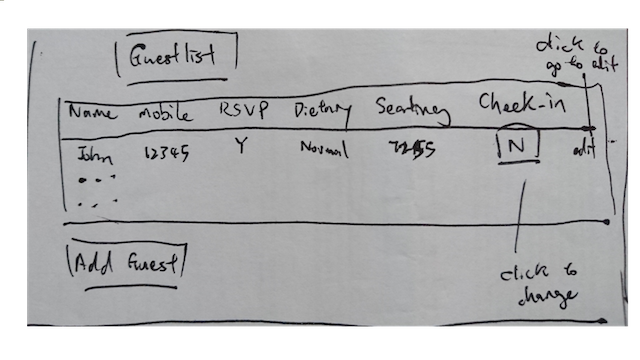 Guest list
click to
go to edit
Name mobile RSVP Dietary Seating Check-in
John 12345 Y Normal N edit
Add Guest
click to
change